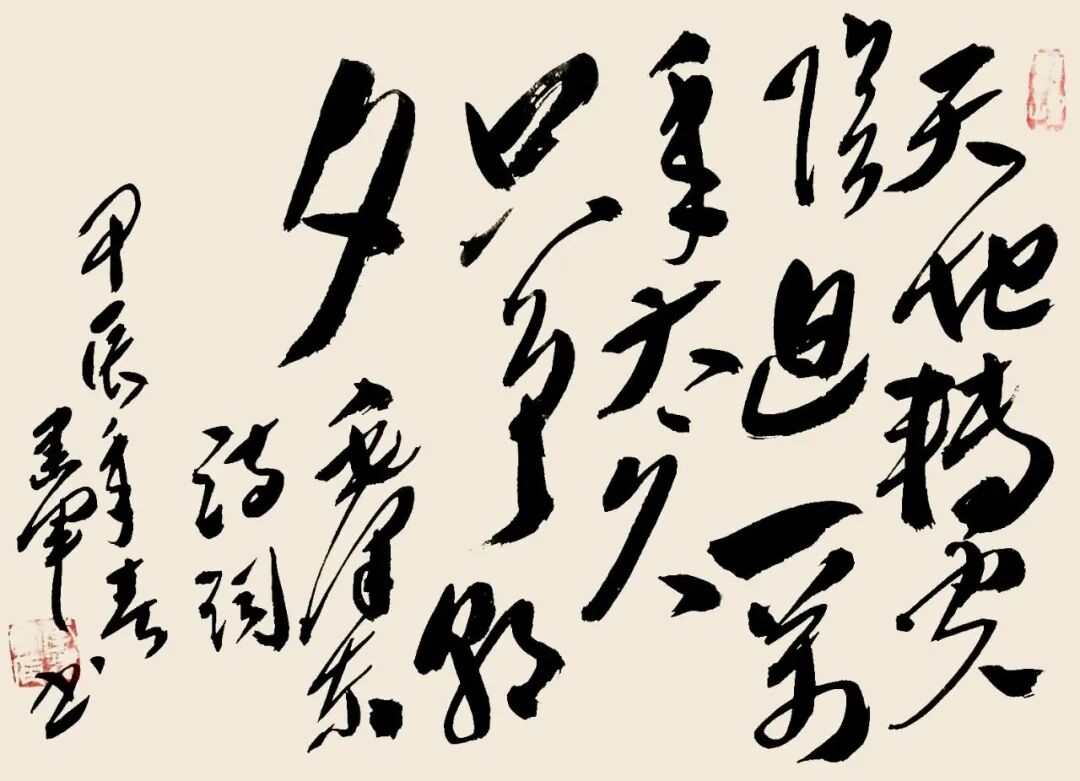 天地轉光
陰迫一萬
年太久
只争朝
夕
毛泽东
诗词
甲辰年春
军书